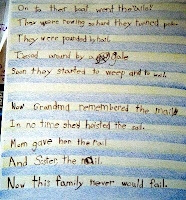 On to their boat went the
They were rowing so hard they turned pale
They were pounded by hail
Tossed around by a gale
Soon they started to weep and to wail.
Now Grandma remembered the mail
In no time she'd hoisted the sail.
Mom gave her the nail
And Sister the nail.
Now this family never would fail.